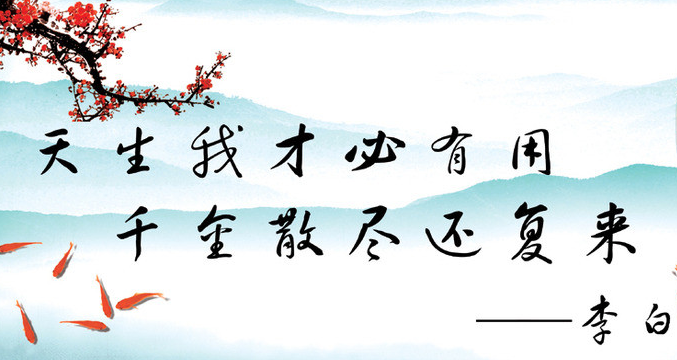 天生我才必有用
千金散尽还复来
——李白